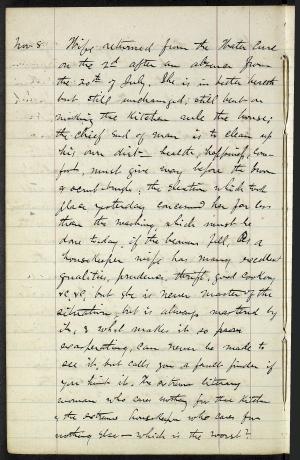 Nov. 8. Wife returned from the Water Cure
on the 2d after an absence from
the 20th of July. She is in better health
but still unchanged; still bent on
making the kitchen rule the house;
the chief end of man is to clean up
his own dirt – health, happiness, com-
fort, must give way before the broom
& scrub brush, the election which took
place yesterday concerned her far less
than the washing, which must be
done today, if the heavens fall. As a
housekeeper wife has many excellent
qualities, prudence, thrift, good cooking,
&c, &c, but she is never master of the
situation, but is always mastered by
it, & what makes it so
exasperating, can never be made to
see it, but calls you a fault finder if
you hint it. The extreme literary
woman who cares nothing for her kitchen
& the extreme housekeeper who cares for
nothing else – which is the worst?